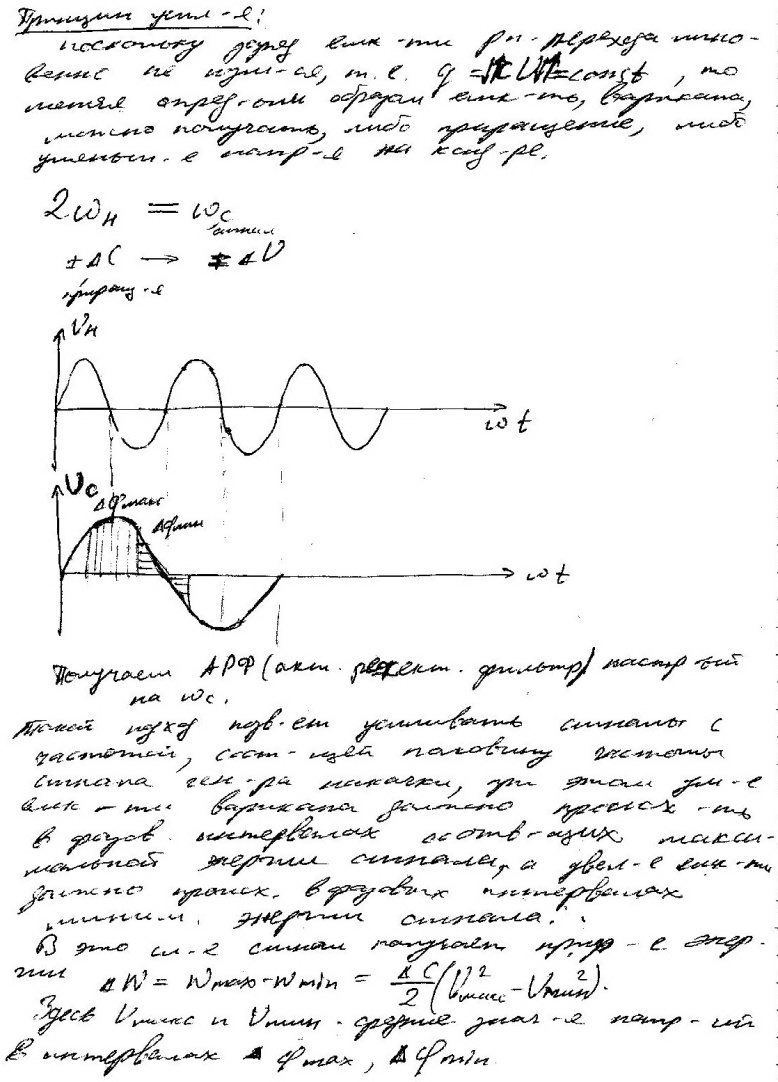 Принцип усил-я:
поскольку заряд емк-ти pn-перехода мгно-
венно не изм-ся, т.е. q = CU = const, то
меняя опред-ым образом емк-ть, варикапа,
можно получать, либо приращение, либо
уменьш-е напр-я на конд-ре.
2ωн = ωс
± ΔC → ∓ ΔU
приращ-я
Uн
ωt
Uс
Δφмакс
Δφмин
ωt
Получаем АРФ (акт. режект. фильтр) настр-ый
на ωс.
Такой подход позв-ет усиливать сигналы с
частотой, сост-щей половину частоты
сигнала ген-ра накачки, при этом ум-е
емк-ти варикапа должно происх-ть
в фазов. интервалах соотв-щих макси-
мальной энергии сигнала, а увел-е емк-ти
должно происх. в фазовых интервалах
миним. энергии сигнала.
В это сл-е сигнал получает приращ-е энер-
гии ΔW = Wmax - Wmin = ΔC/2 (U²макс - U²мин).
Здесь Uмакс и Uмин - средние знач-я напр-ий
в интервалах Δφmax, Δφmin.